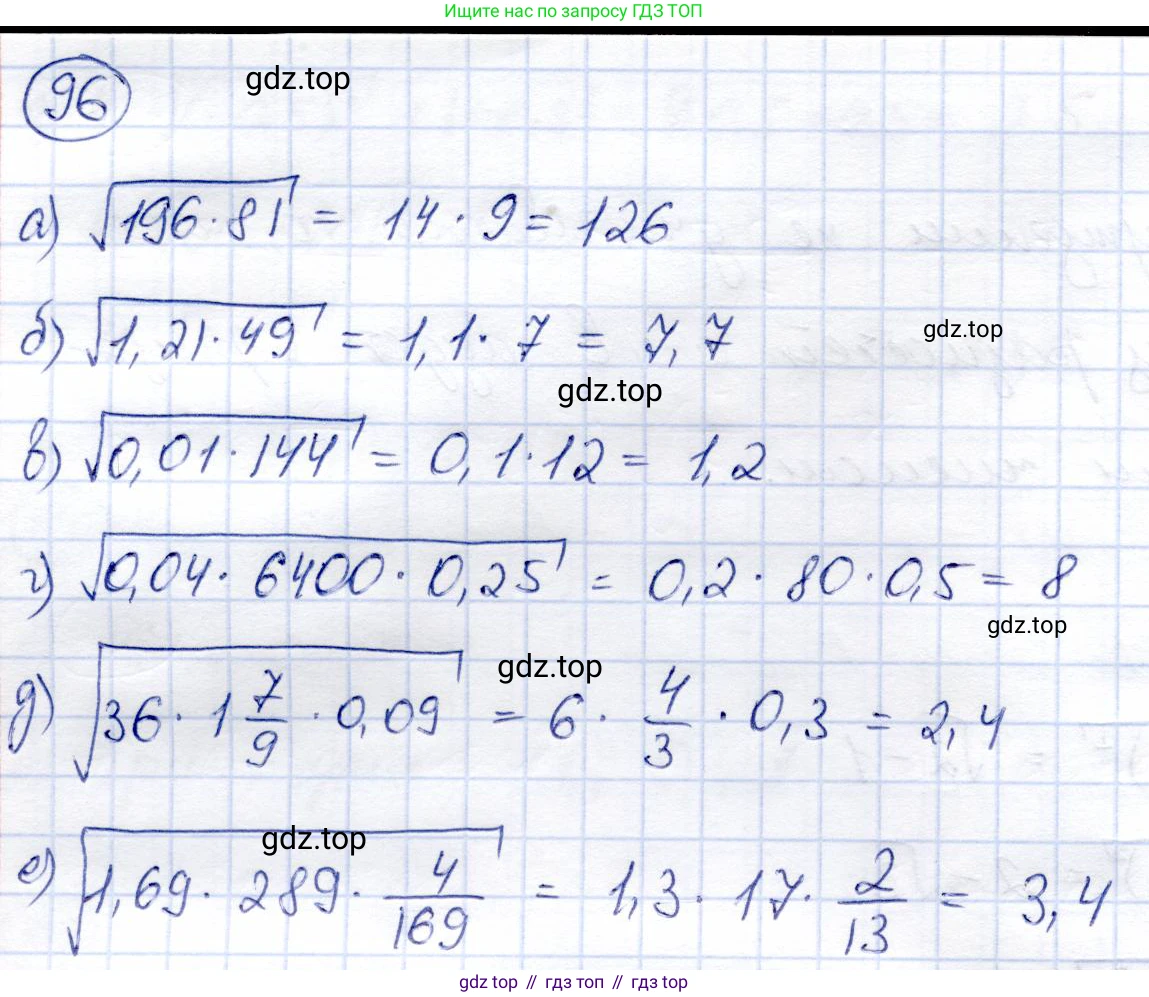 Ищите нас по запросу ГДЗ ТОП
96 gdz.top
а) √196·81 = 14·9 = 126
б) √1,21·49 = 1,1·7 = 7,7
gdz.top
gdz.top
в) √0,01·144 = 0,1·12 = 1,2
г) √0,04·6400·0,25 = 0,2·80·0,5 = 8
gdz.top
gdz.top
д) √36·1 7/9·0,09 = 6·4/3·0,3 = 2,4
gdz.top
е) √1,69·289·4/169 = 1,3·17·2/13 = 3,4
gdz top // гдз топ // gdz top